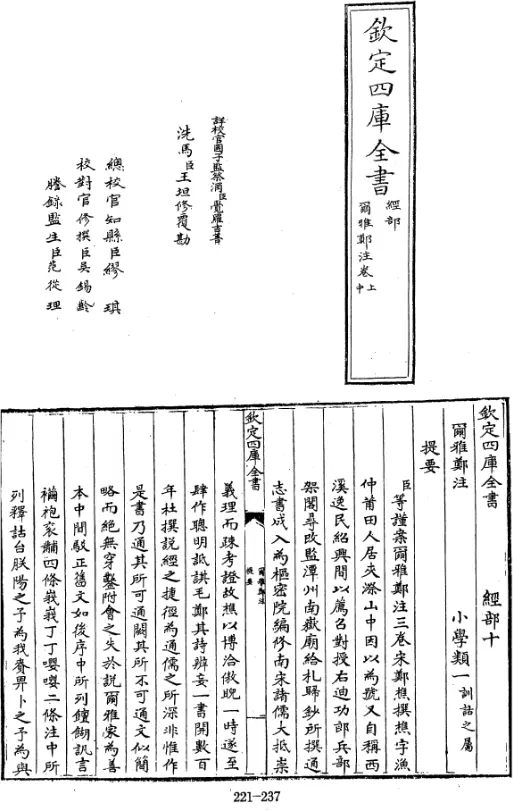 欽定四庫全書
經部
爾雅鄭注卷上
中
詳校官國子監祭酒臣覺羅吉善
洗馬臣王坦修覆勘
總校官知縣臣繆琪
校對官修撰臣吳錫齡
謄錄監生臣范從理
欽定四庫全書 經部十
爾雅鄭注 小學類一訓詁之屬
提要
臣等謹案爾雅鄭注三卷宋鄭樵撰樵字漁
仲莆田人居夾漈山中因以為號又自稱西
溪逸民紹興間以薦召對授右迪功郎兵部
架閣尋改監潭州南嶽廟給札歸鈔所撰通
志書成入為樞密院編修南宋諸儒大抵崇
欽定四庫全書
爾雅鄭注
提要
義理而疎考證故樵以博洽傲睨一時遂至
肆作聰明詆諆毛鄭其詩辨妄一書開數百
年杜撰說經之捷徑為通儒之所深非惟作
是書乃通其所可通闕其所不可通文似簡
略而絕無穿鑿附會之失於說爾雅家為善
本中間駁正舊文如後序中所列饘餬訊言
襺袍袞黼四條峩峩丁丁嚶嚶二條注中所
列釋詁台朕陽之予為我賚畀卜之予為與
221-237